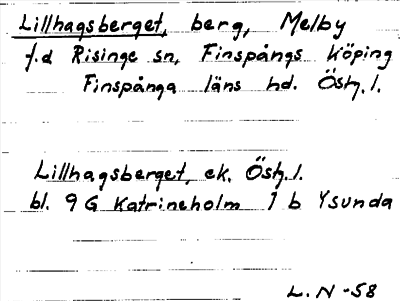 Lillhagsberget, berg, Melby
f.d Risinge sn, Finspångs köping
Finspånga läns hd. Östg.l.
Lillhagsberget, ek. Östg.l.
bl. 9 G Katrineholm 1 b Ysunda
L.N -58